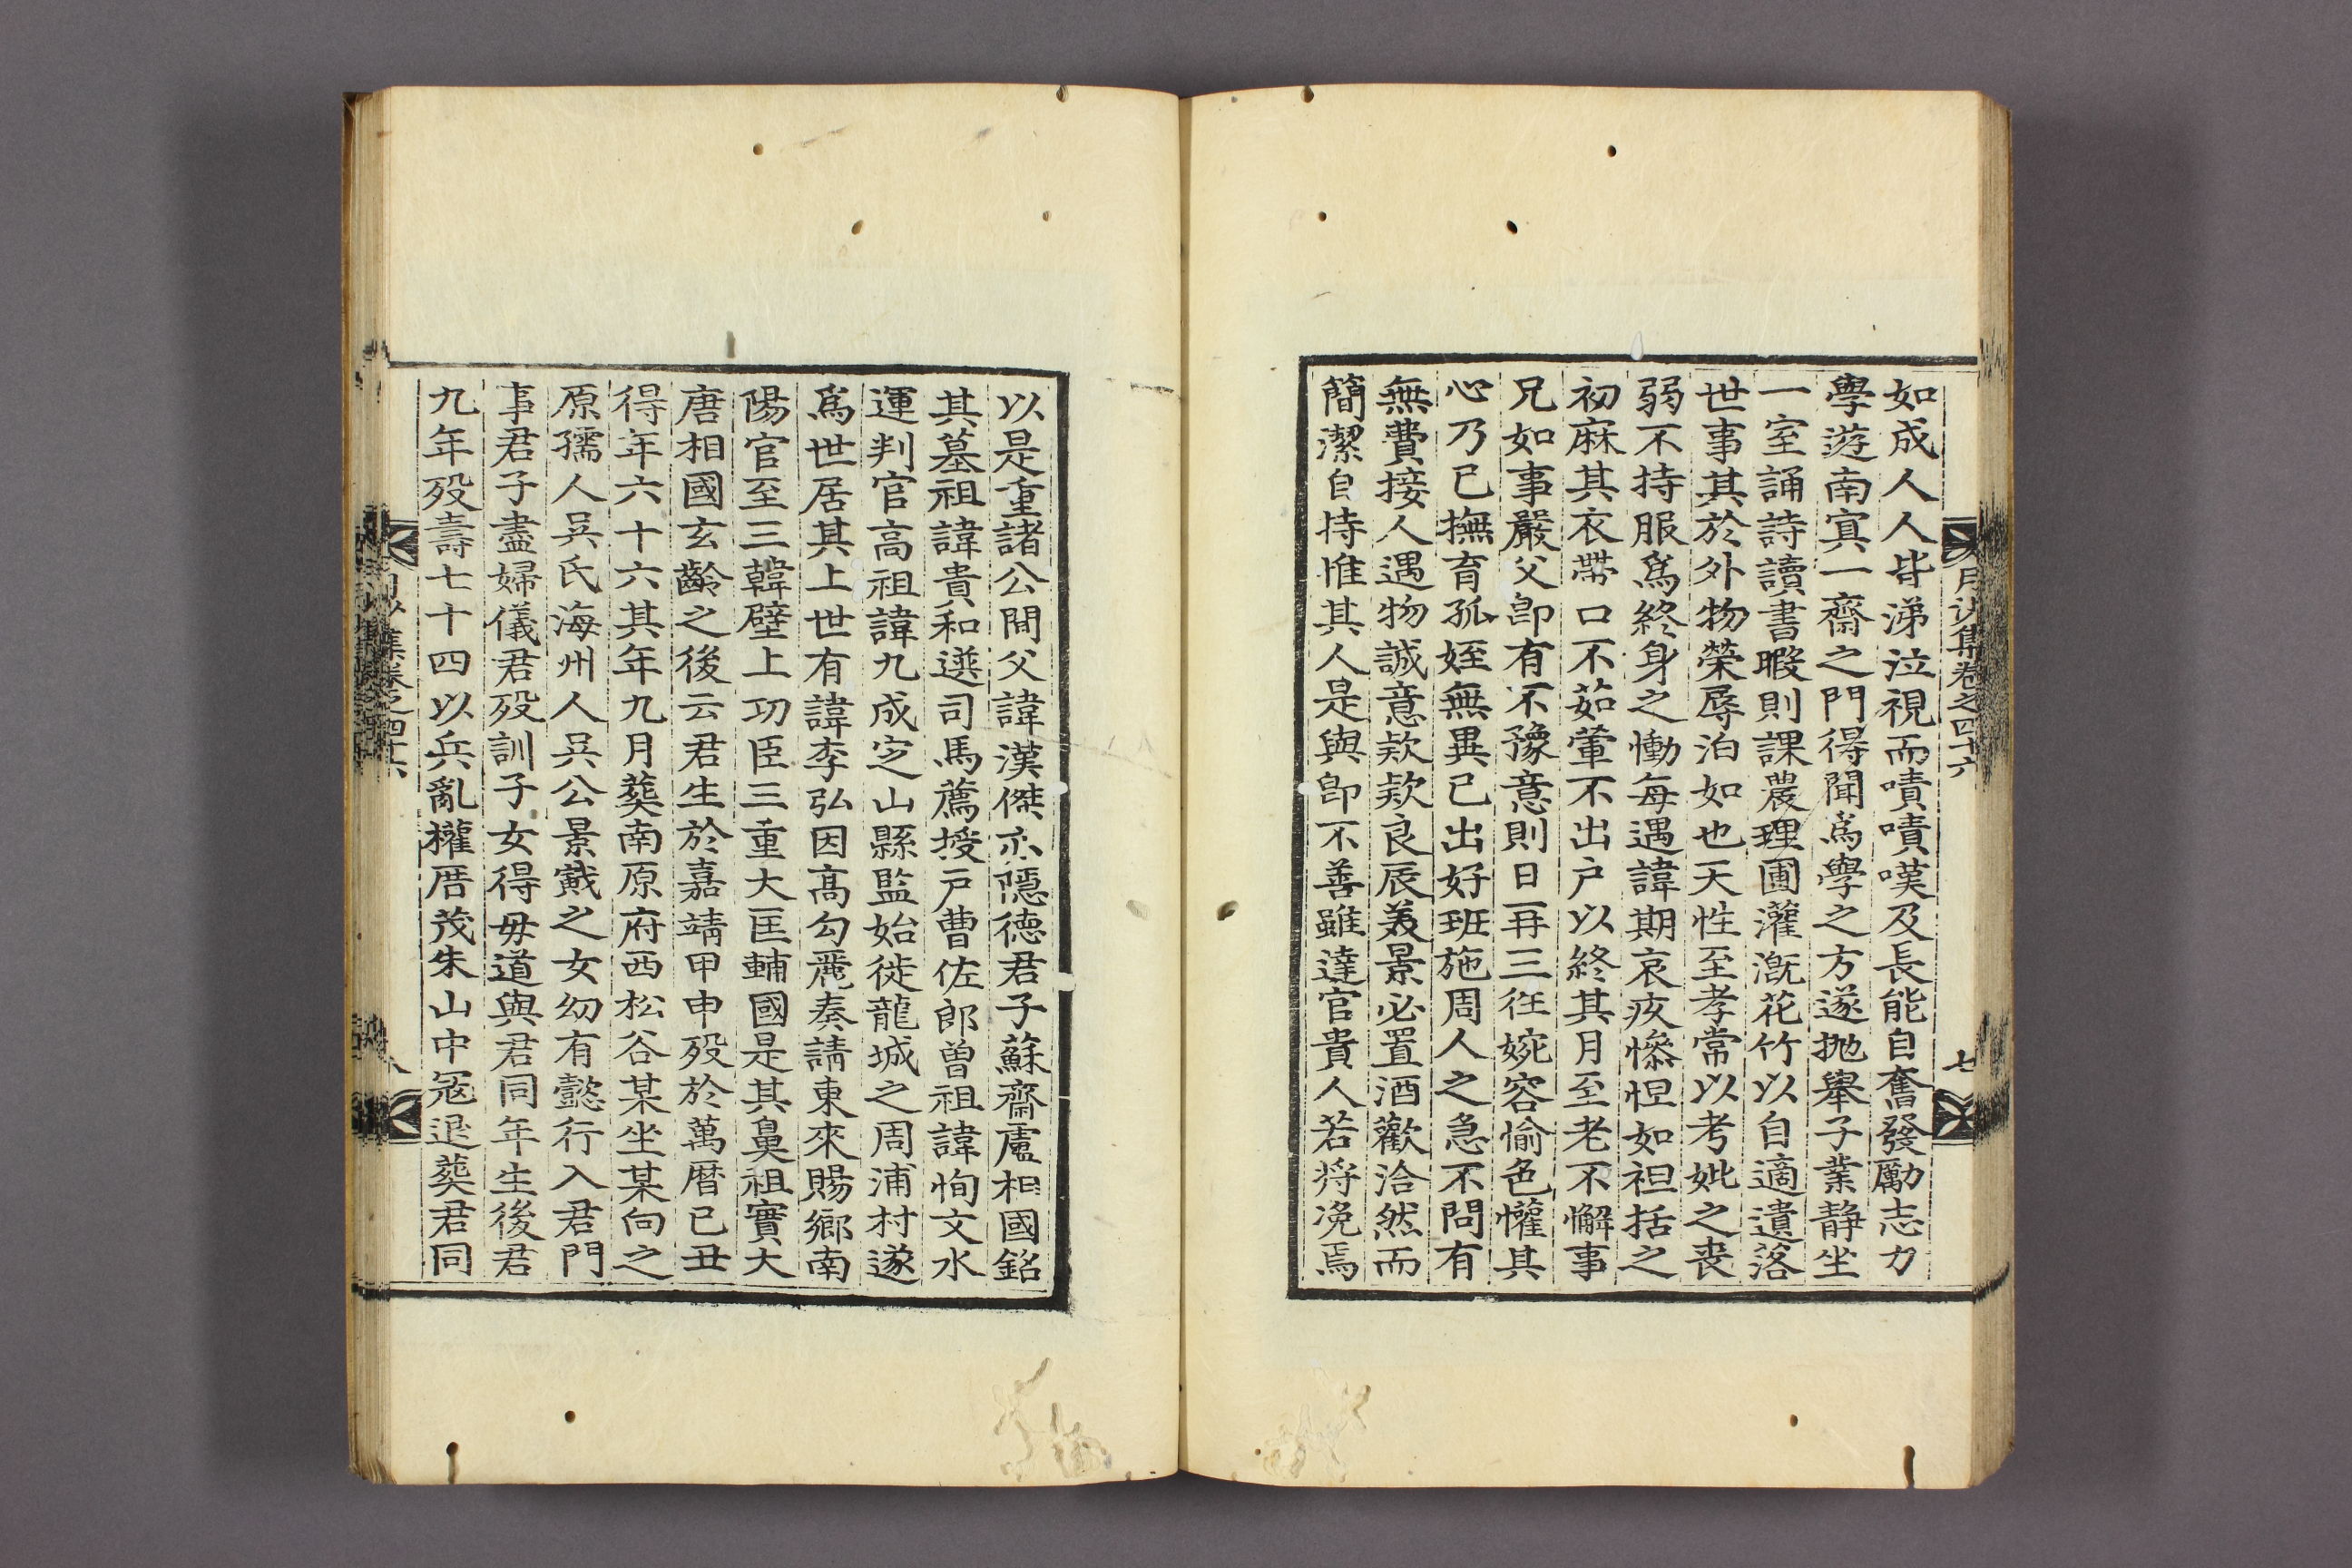 月沙集卷之四十六
七
如成人人皆涕泣視而嘖嘖嘆及長能自奮發勵志力
學遊南㝠一齋之門得聞爲學之方遂抛舉子業靜坐
一室誦詩讀書暇則課農理圃灌漑花竹以自適遺落
世事其於外物榮辱泊如也天性至孝常以考妣之喪
弱不持服爲終身之慟每遇諱期哀疚慘怛如袒括之
初麻其衣帶口不茹葷不出戶以終其月至老不懈事
兄如事嚴父卽有不豫意則日再三徃婉容愉色懽其
心乃已撫育孤姪無異已出好班施周人之急不問有
無費接人遇物誠意欵欵良辰美景必置酒歡洽然而
簡潔自持惟其人是與卽不善雖達官貴人若將浼焉
以是重諸公間父諱漢傑亦隱德君子蘇齋盧相國銘
其墓祖諱貴和選司馬薦授戶曹佐郞曾祖諱恂文水
運判官高祖諱九成定山縣監始徙龍城之周浦村遂
爲世居其上世有諱李弘因高勾麗奏請東來賜鄕南
陽官至三韓壁上功臣三重大匡輔國是其鼻祖實大
唐相國玄齡之後云君生於嘉靖甲申歿於萬曆己丑
得年六十六其年九月葬南原府西松谷某坐某向之
原孺人吳氏海州人吳公景戴之女幼有懿行入君門
事君子盡婦儀君歿訓子女得毋道與君同年生後君
九年歿壽七十四以兵亂權厝茂朱山中冦退葬君同
月沙集卷之四十六
八